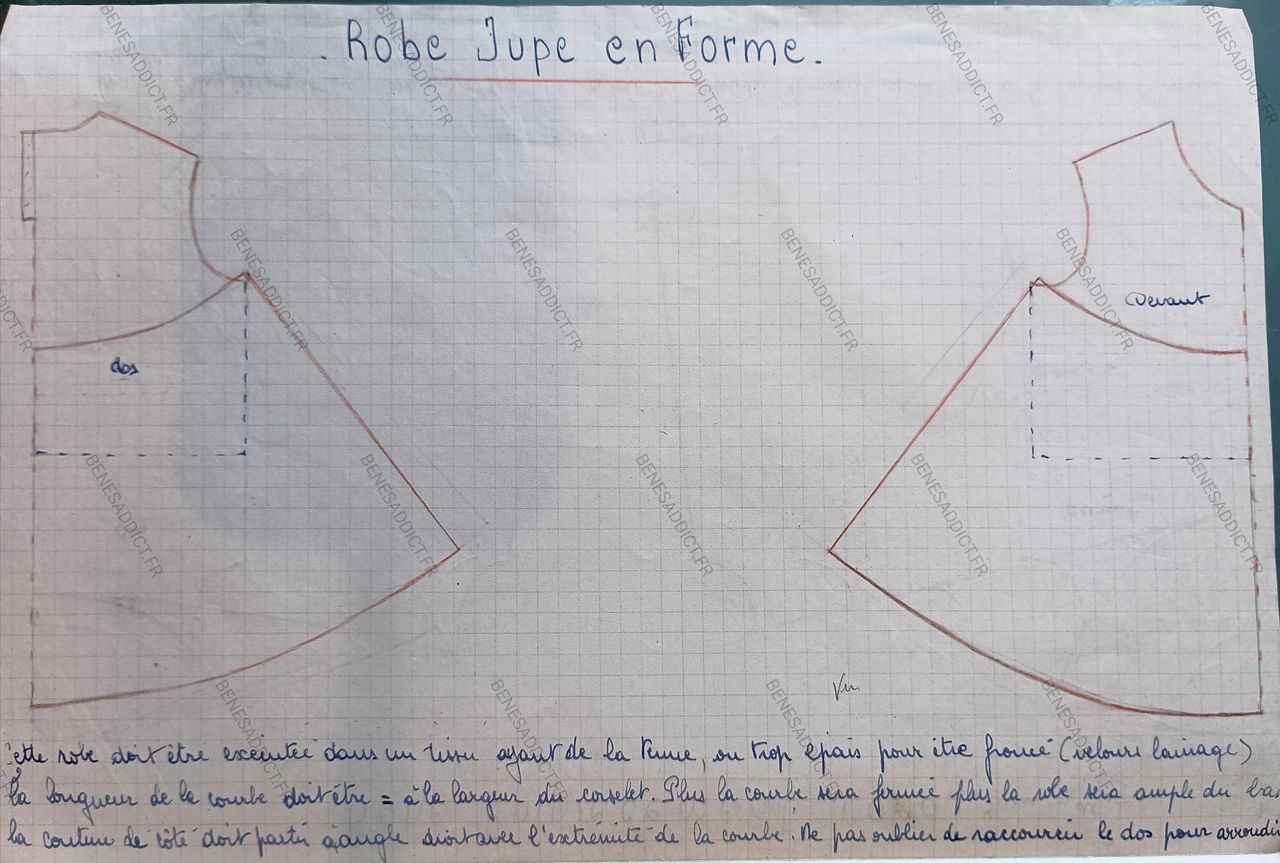 . Robe Jupe en Forme.
dos
Devant
Vu
Cette robe doit être exécutée dans un tissu ayant de la tenue, ou trop épais pour être froncé (velours lainage)
La longueur de la courbe doit être = à la largeur du corselet. Plus la courbe sera fermée plus la robe sera ample du bas
La couture de côté doit partir à angle droit avec l'extrémité de la courbe. Ne pas oublier de raccourcir le dos pour arrondir
BENESADDICT.FR